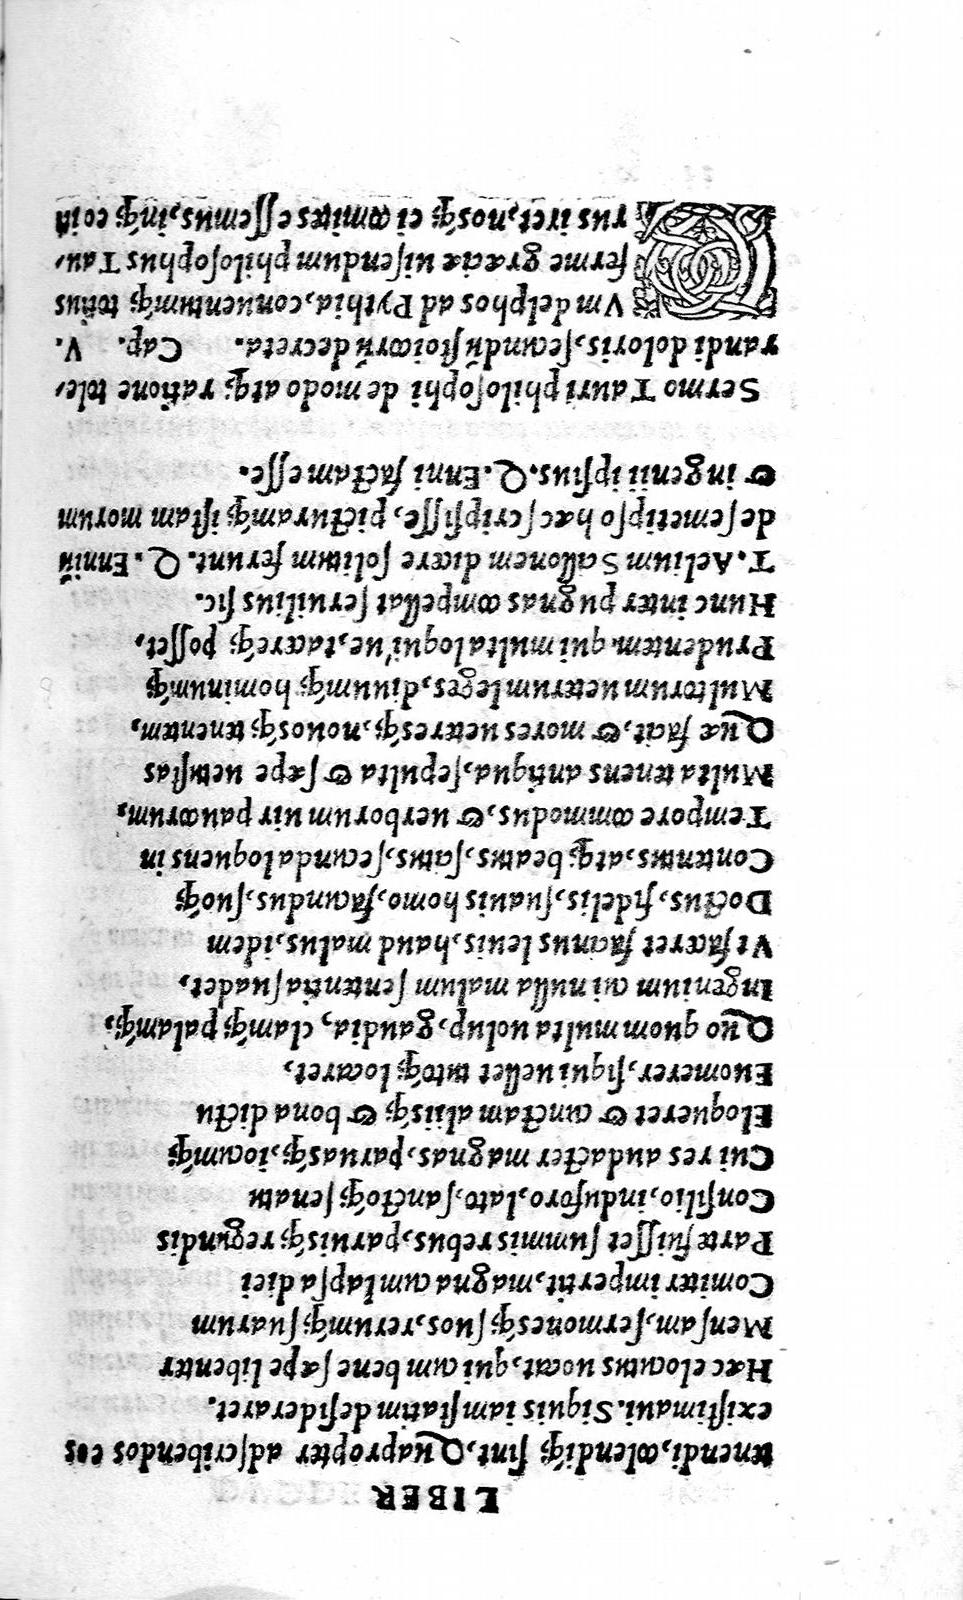 LIBER
tenendi, colendiq́; sint, Quapropter adscribendos eos
existimaui. Siquis iam statim desideraret.
Hæc elocutus uocat, qui cum bene sæpe libenter
Mensam, sermonesq́; suos, rerumq́; suarum
Comiter impertit, magna cum lapsa diei
Parte fuisset summis rebus, paruisq́; regundis
Consilio, induforo, lato, sanctoq́; senatu
Cui res audacter magnas, paruasq́;, iocumq́;
Eloqueret & cunctam aliisq́; & bona dictu
Euomerer, siqui uellet tutoq́; locaret,
Quo quom multa uolup, gaudia, clamq́; palamq́;,
Ingenium cui nulla malum sententia suadet,
Vt faceret facinus leuis, haud malus, idem
Doctus, fidelis, suauis homo, facundus, suoq́;
Contentus, atq; beatus, satus, secunda loquens in
Tempore commodus, & uerborum uir paucorum,
Multa tenens antiqua, sepulta & sæpe uetustas
Quæ facit, & mores ueteresq́;, nouosq́; tenentem,
Multorum ueterum leges, diuumq́; hominumq́;
Prudentem, qui multa loqui'ue, tacereq́; posset,
Hunc inter pugnas compellat seruilius sic.
T. Aelium Sallonem dicere solitum ferunt. Q. Enniũ
de semetipso hæc scripsisse, picturamq́; istam morum
& ingenii ipsius. Q. Enni factam esse.
Sermo Tauri philosophi de modo atq; ratione tole,
randi doloris, secundũ stoicorũ decreta. Cap. V.
Vm delphos ad Pythia, conuentumq́; totius
ferme græciæ uisendum philosophus Tau,
rus iret, nosq́; ei comites essemus, inq́; eo iti